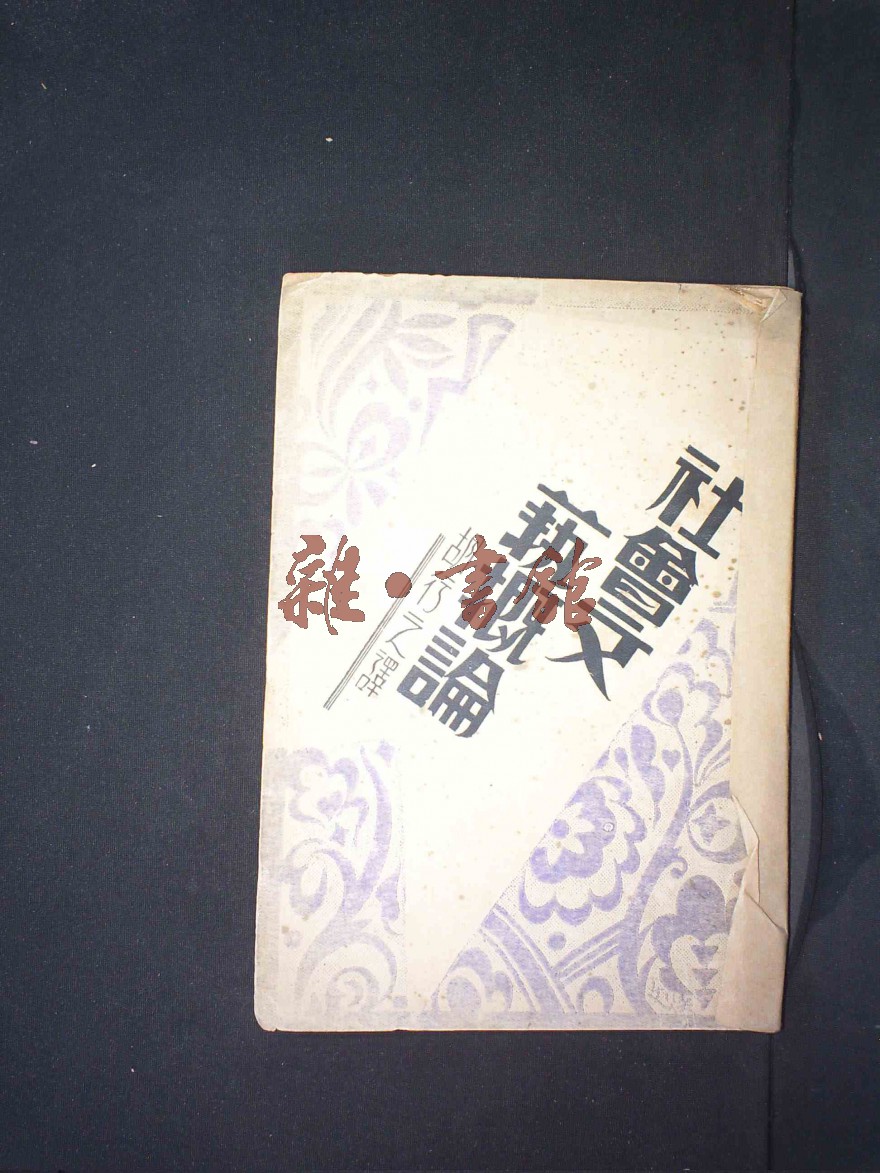 社會文
藝概論
胡行之譯
雜·書館